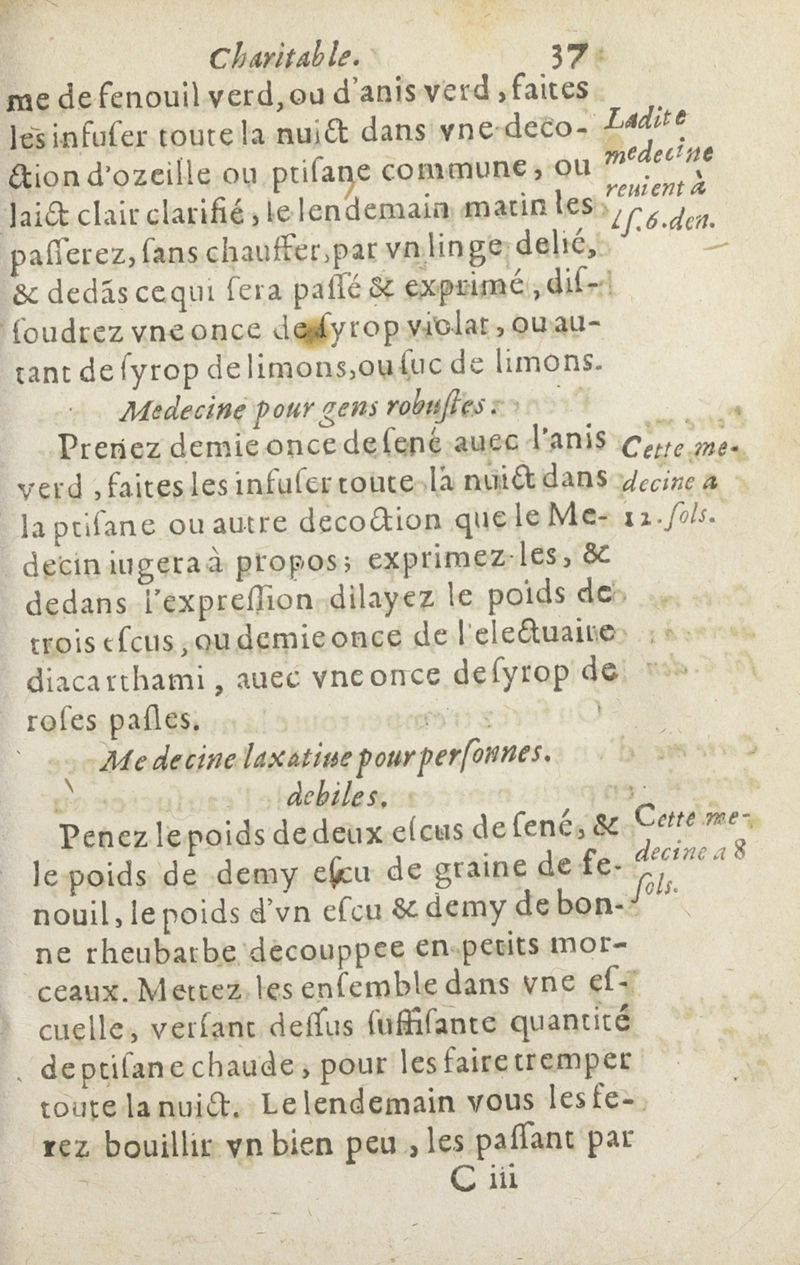 Charitable. 37
me de fenouil verd, ou d'anis verd, faites
les infuſer toute la nuict dans vne deco-
ction d'ozeille ou ptiſane commune, ou
laict clair clarifié, le lendemain matin les
paſſerez, ſans chauffer, par vn linge delié,
& dedãs ce qui ſera paſſé & exprimé, diſ-
ſoudrez vne once de ſyrop violat, ou au-
tant de ſyrop de limons, ou ſuc de limons.
Ladite
medecine
reuient à
1ſ. 6. den.
Medecine pour gens robuſtes.
Prenez demie once de ſené auec l'anis
verd, faites les infuſer toute la nuict dans
la ptiſane ou autre decoction que le Me-
decin iugera à propos; exprimez-les, &
dedans l'expreſſion dilayez le poids de
trois eſcus, ou demie once de l'electuaire
diacarthami, auec vne once de ſyrop de
roſes paſles.
Cette me-
decine a
12. ſols.
Medecine laxatiue pour perſonnes.
debiles.
Penez le poids de deux eſcus de ſené, &
le poids de demy eſcu de graine de fe-
nouil, le poids d'vn eſcu & demy de bon-
ne rheubarbe decouppee en petits mor-
ceaux. Mettez les enſemble dans vne eſ-
cuelle, verſant deſſus ſuffiſante quantité
de ptiſane chaude, pour les faire tremper
toute la nuict. Le lendemain vous les fe-
rez bouillir vn bien peu, les paſſant par
Cette me-
decine a 8
ſols.
C iii